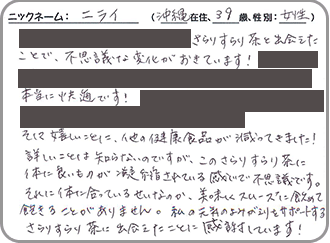 ニックネーム： ニライ （沖縄在住、39歳、性別：女性）
さらりすらり茶と出会えた
ことで、不思議な変化がおきています！
本当に快適です！
そして嬉しいことに、他の健康食品が減ってきました！
詳しいことは知らないのですが、このさらりすらり茶に
体に良いものが凝縮されている感じで不思議です。
それに体に合っているせいなのか、美味しくスムーズに飲めて
飽きることがありません。私の元気のよみがえりをサポートする
さらりすらり茶に出会えたことに感謝しています！